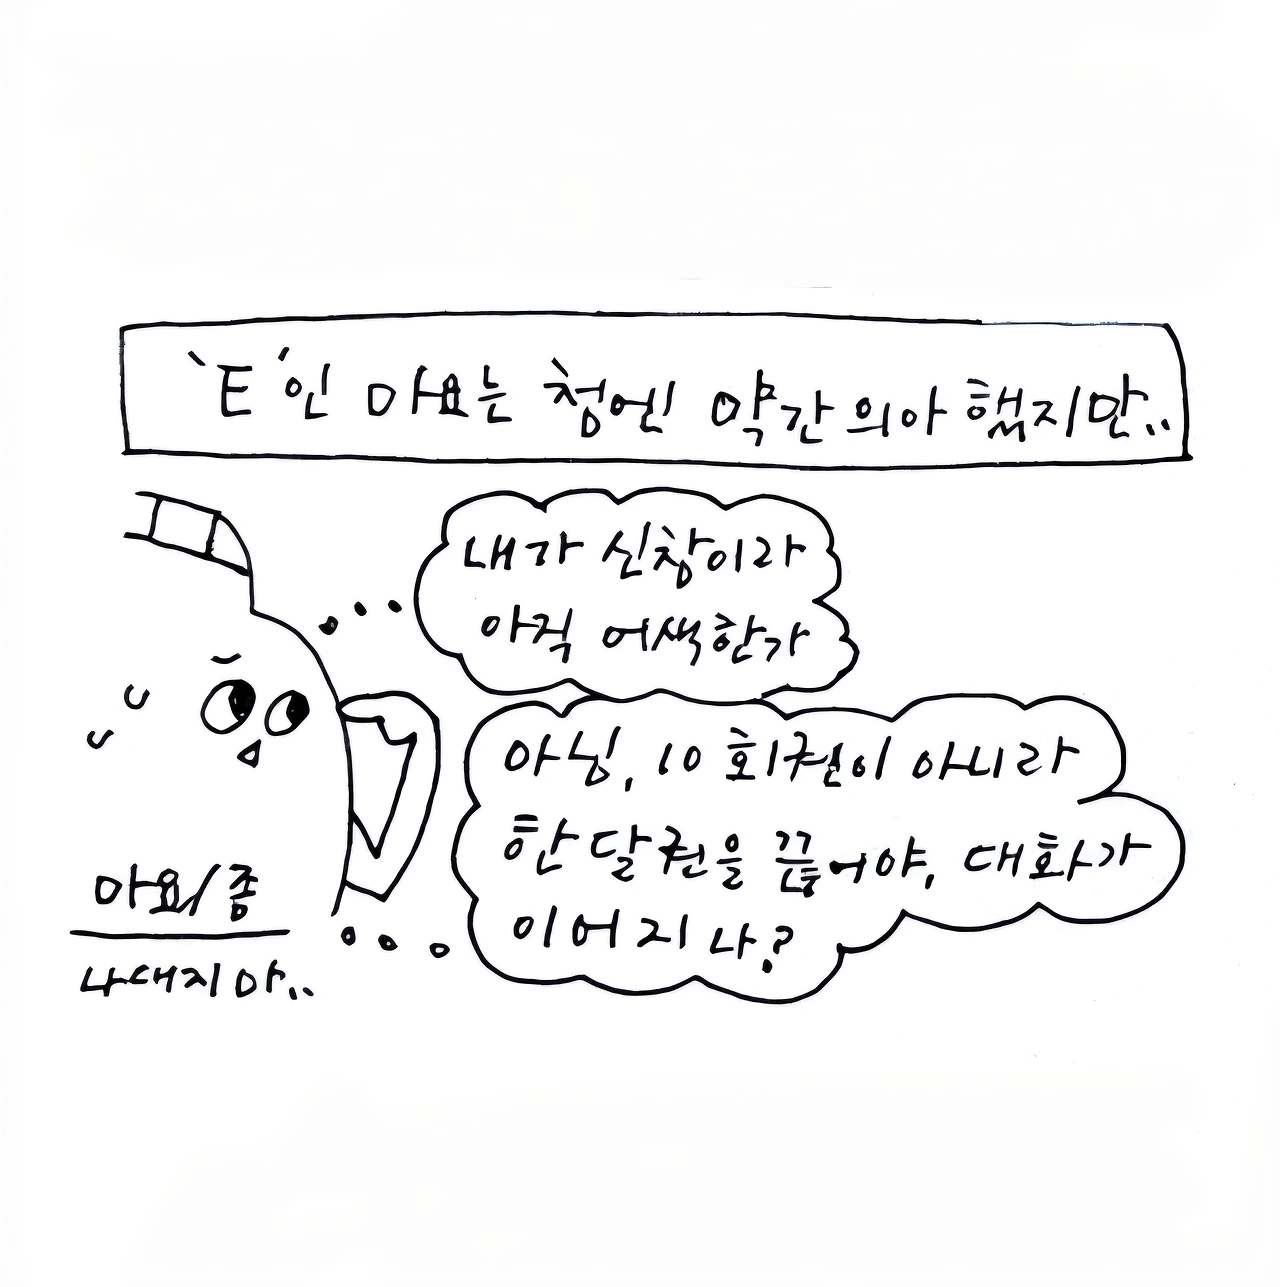 'E'인 마요는 첨엔 약간 의아 했지만..
내가 신참이라
아직 어색한가
아님, 10회권이 아니라
한달권을 끊어야, 대화가
이어지나?
마요/좀
나대지마..